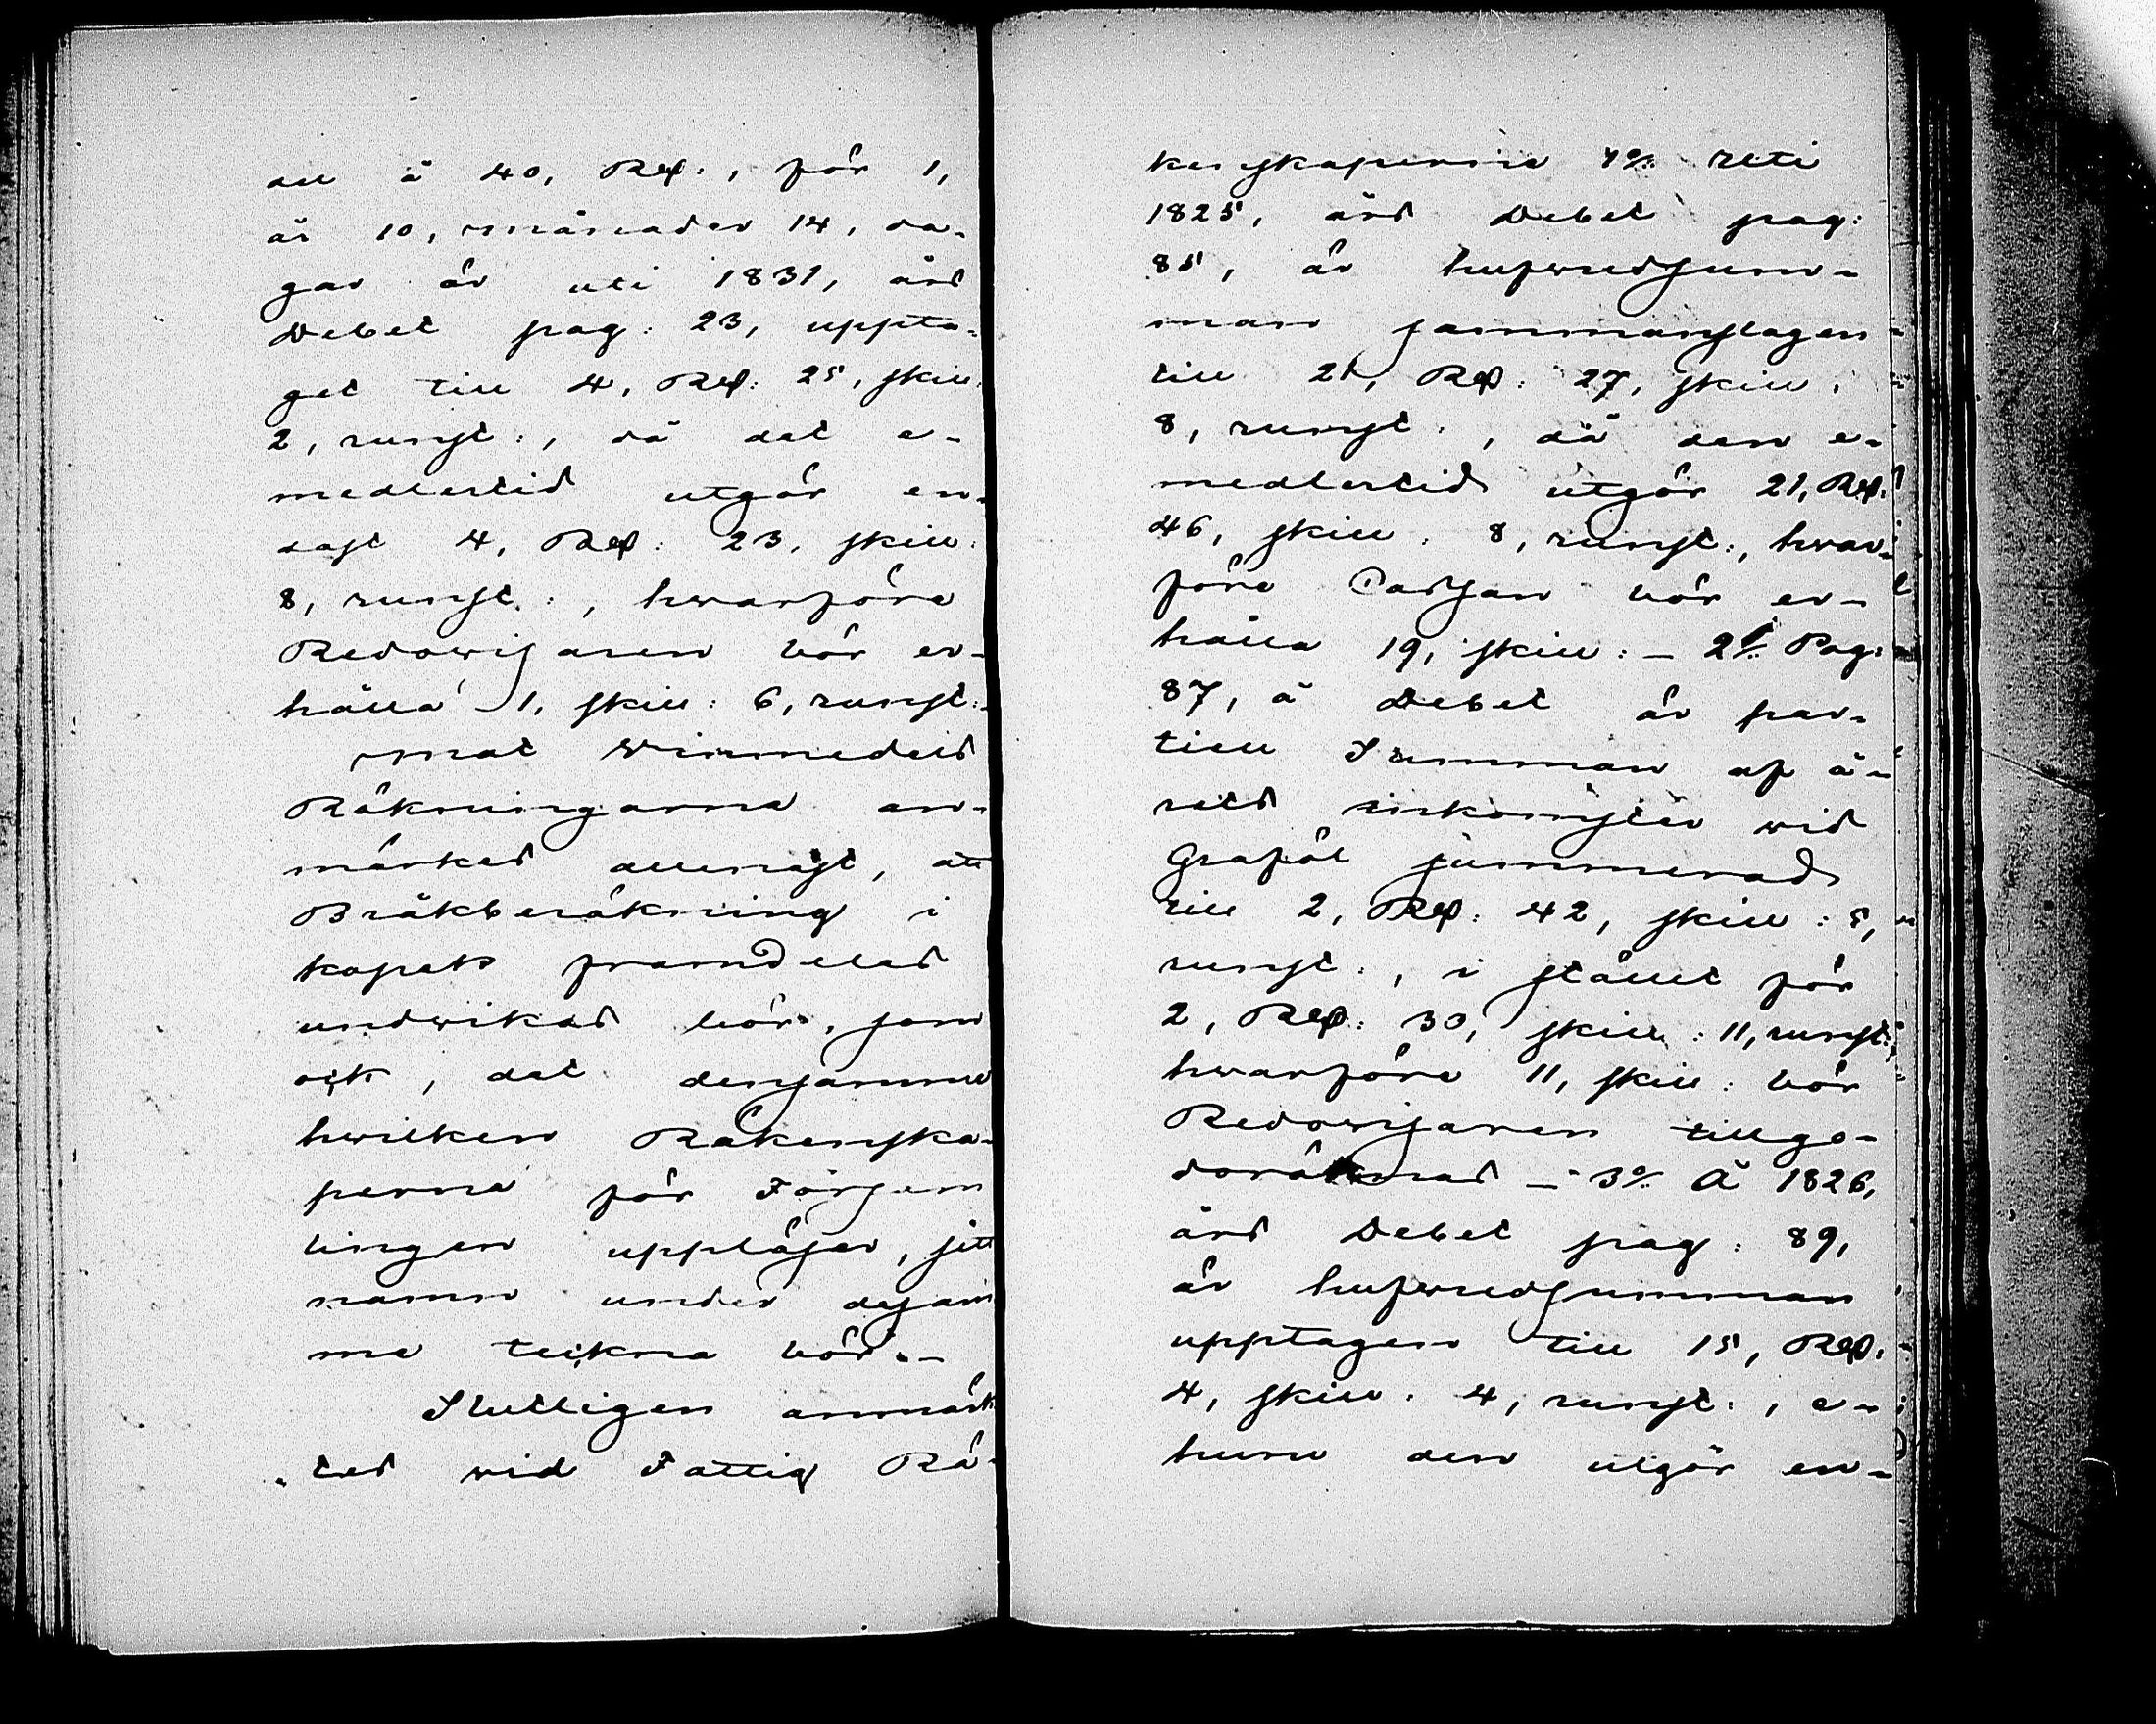 all å 40, Rd:, för 1,
år 10, månader 14, da-
gar är uti 1831, års
Debet pag: 23, uppta-
get till 4, Rd: 25, skill:
2, runst:, då det e-
medlertid utgör en-
dast 4, Rd: 23, skill:
8, runst:, hwarföre
Redowisaren bör er-
hålla 1, skill: 6, runst:-
mat Winmedels
Räkningarne an-
märkes allenast, att
Bråkberäkning i
kopek framdeles
undwikas bör, som
ock, det densamme
hwilken Räkenska-
perne för Församl
lingen uppläser, sitt
namn under desam
me teckna bör.-
Slutligen anmärk
tes wid Fattig Rä-
kenskaperne 1o/. Uti
1825, års Debet pag:
85, är hufwudsum-
man sammanslagen
till 21, Rd: 27, skill:
8, runst:, då den e-
medlertid utgör 21, Rd:
46, skill: 8, runst:, hwar-
före Cassan bör er-
hålla 19, skill: - 2o/. Pag:
87, å Debet är par-
tiell Summan af å-
rets inkomster wid
Graföl summerad
till 2, Rd: 42, skill: 8,
runst:, i stället för
2, Rd: 30, skill: 11, runst:,
hwarföre 11, skill: bör
Redowisaren tillgo-
doräknas - 3o/. Å 1826,
års Debet pag: 89,
är hufwudsumman
upptagen till 15, Rd:
4, skill: 4, runst:, e-
huru den utgör en-